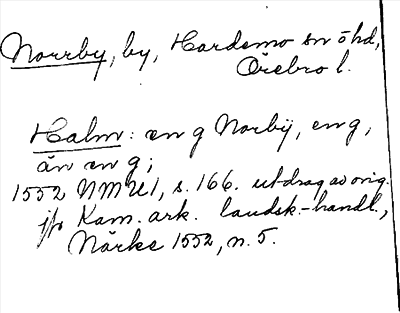 Norrby, by, Hardemo sn o hd,
Örebro l.
Halm: en g Norbÿ, en g,
än en g;
1552 NMU1, s. 166. utdrag av orig.
jfr Kam. ark. landsk.-handl.,
Närke 1552, n. 5.